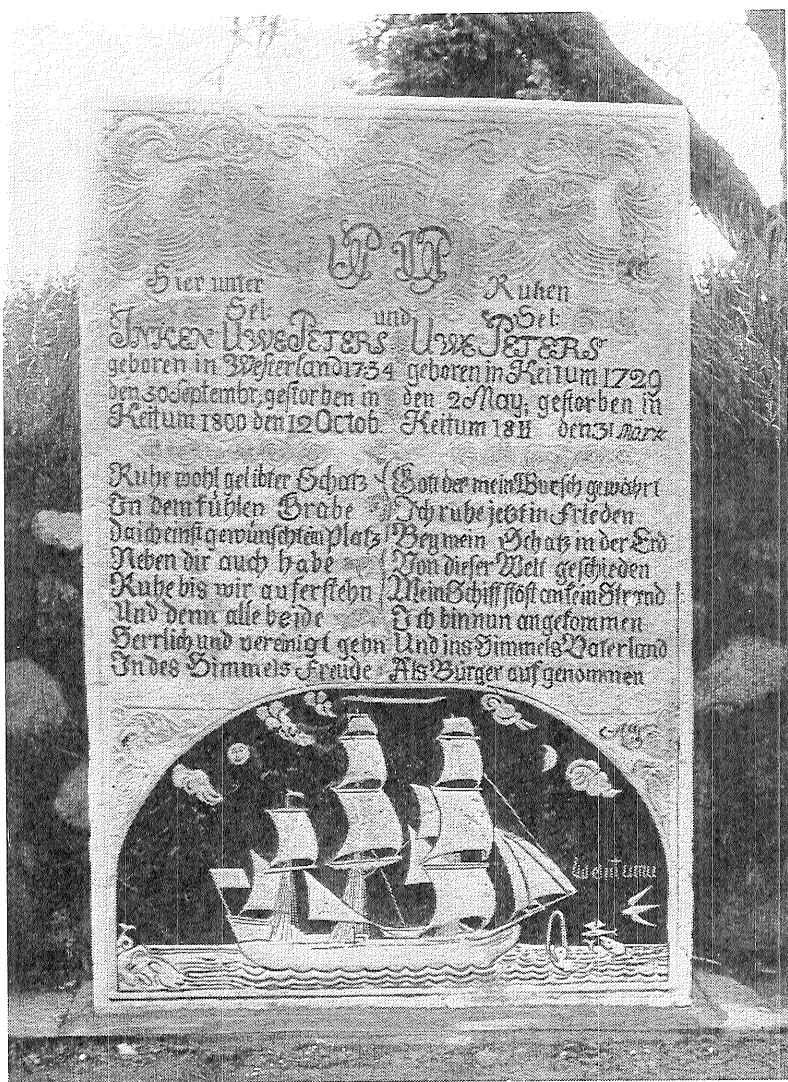 Hier unter
Sel:
INKEN UWE PETERS
geboren in Westerland 1734
den 30 Septembr, gestorben in
Keitum 1800 den 12 Octob.
und
Ruhen
Sel:
UWE PETERS
geboren in Keitum 1729
den 2 May, gestorben in
Keitum 1811 den 31 März
Ruhe wohl gelibter Schatz
In dem kühlen Grabe
da ich einst gewünschten Platz
Neben dir auch habe
Ruhe bis wir auferstehn
Und denn alle beide
Herrlich und vereinigt gehn
In des Himmels Freude
Gott der mein Wunsch gewährt
Ich ruhe jetzt in Frieden
Bey mein Schatz in der Erd
Von dieser Welt geschieden
Mein Schiff stöst an kein Strand
Ich bin nun angekommen
Und ins Himmels Vaterland
Als Bürger aufgenommen